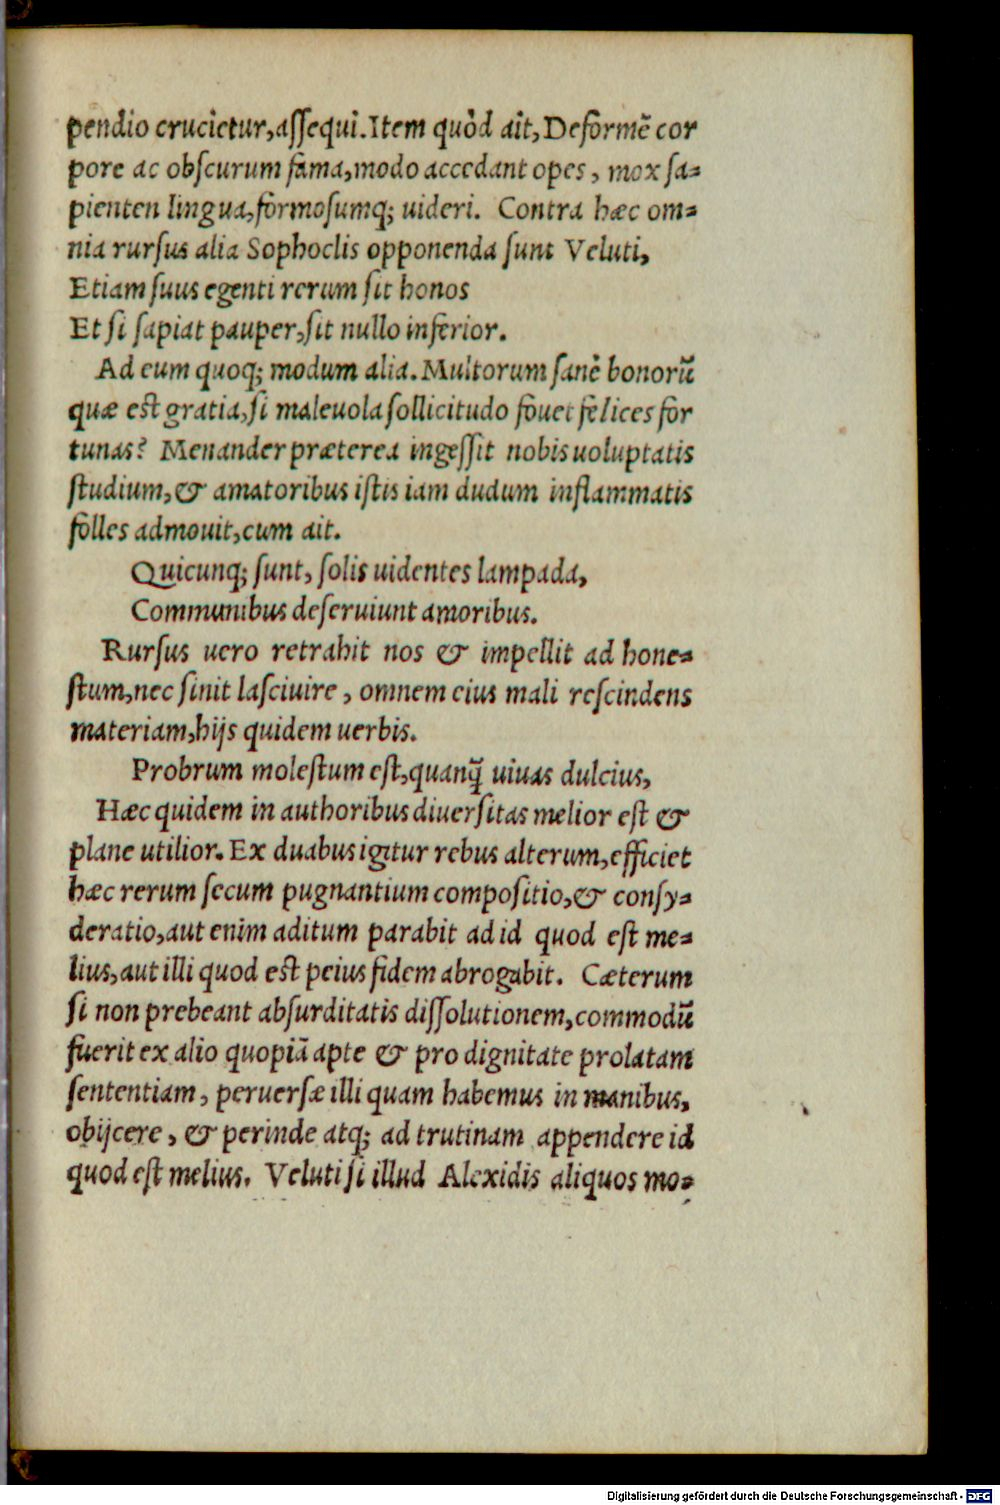 pendio crucietur,aſſequi.Item quòd ait,Deformẽ cor
pore ac obſcurum fama,modo accedant opes , mox ſa-
pienten lingua,formoſumq; uideri. Contra hæc om-
nia rurſus alia Sophoclis opponenda ſunt Veluti,
Etiam ſuus egenti rerum ſit honos
Et ſi ſapiat pauper,ſit nullo inferior.
Ad eum quoq; modum alia. Multorum ſanè bonorũ
quæ eſt gratia,ſi maleuola ſollicitudo fouet felices for
tunas? Menander præterea ingeſſit nobis uoluptatis
ſtudium,& amatoribus iſtis iam dudum inflammatis
folles admouit,cum ait.
Quicunq; ſunt, ſolis uidentes lampada,
Communibus deſeruiunt amoribus.
Rurſus uero retrahit nos & impellit ad hone-
ſtum,nec ſinit laſciuire , omnem eius mali reſcindens
materiam,hijs quidem uerbis.
Probrum moleſtum eſt,quanq̃ uiuas dulcius,
Hæc quidem in authoribus diuerſitas melior eſt &
plane utilior. Ex duabus igitur rebus alterum,efficiet
hæc rerum ſecum pugnantium compoſitio,& conſy-
deratio,aut enim aditum parabit ad id quod eſt me-
lius,aut illi quod eſt peius fidem abrogabit. Cæterum
ſi non prebeant abſurditatis diſſolutionem,commodũ
fuerit ex alio quopiã apte & pro dignitate prolatam
ſententiam , peruerſæ illi quam habemus in manibus,
obijcere , & perinde atq; ad trutinam appendere id
quod eſt melius. Veluti ſi illud Alexidis aliquos mo-
Digitalisierung gefördert durch die Deutsche Forschungsgemeinschaft - DFG